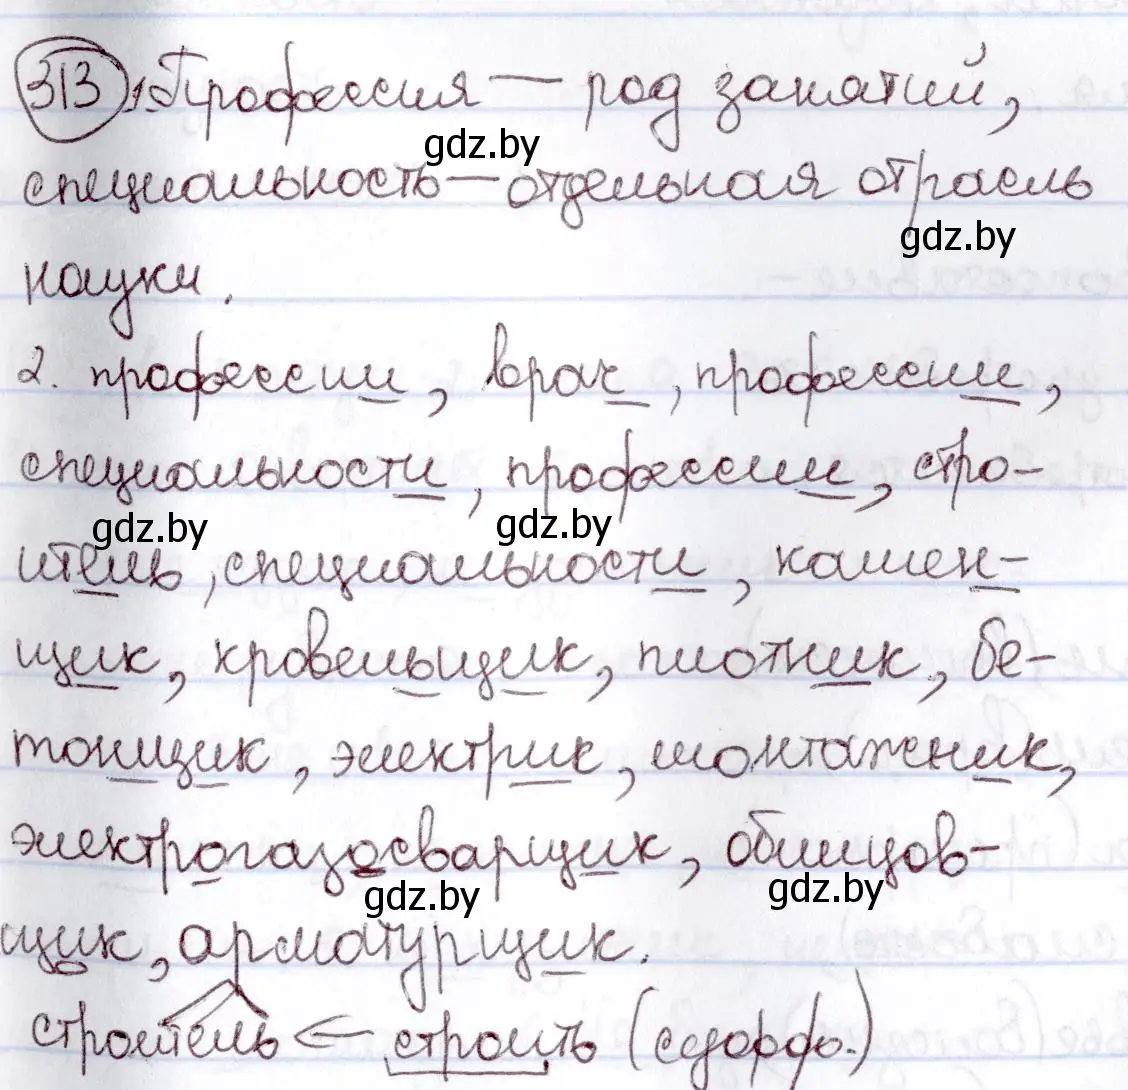 313 1. Профессия — род занятий,
gdz.by
специальность — отдельная отрасль
gdz.by
науки.
2. профессии, врач, профессии,
специальности, профессии, стро-
gdz.by gdz.by
итель, специальности, камен-
щик, кровельщик, плотник, бе-
тонщик, электрик, монтажник,
электрогазосварщик, облицов-
gdz.by gdz.by
щик, арматурщик.
строитель ← строить (суффф.)